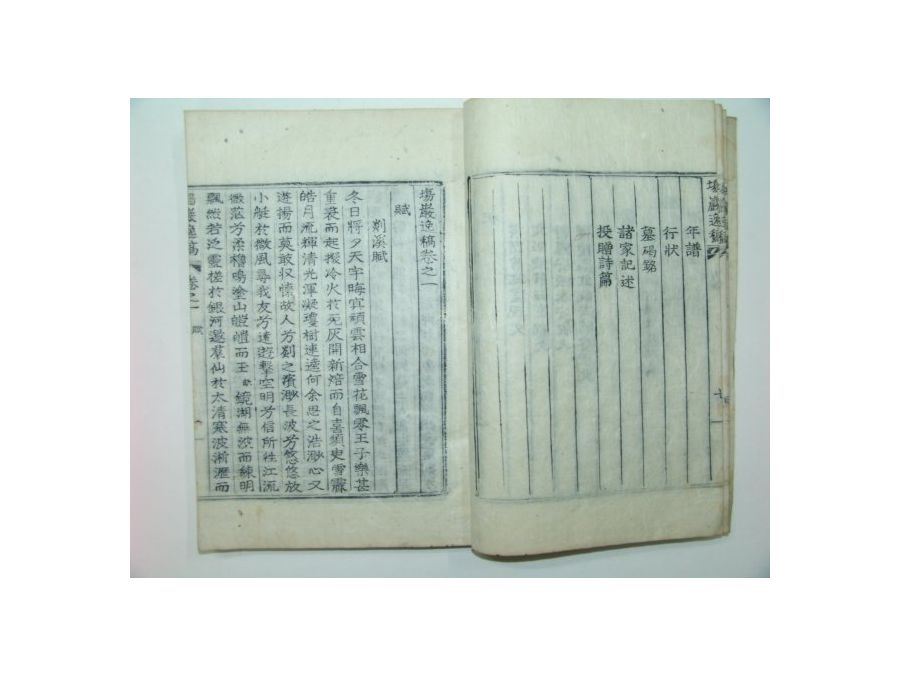 場巖逸稿
年譜
行狀
墓碣銘
諸家記述
授贈詩篇
場巖逸稿卷之一
賦
剡溪賦
冬日將夕天宇晦冥頑雲相合雪花飄零王子樂甚
重裘而起撥冷火於死灰開新焙而自喜須臾雪霽
皓月流輝清光渾凝瓊樹連逵何余思之浩渺心又
遊揚而莫收懷故人兮剡之濱渺長波兮悠悠放
小艇於微風尋我友兮遠遊擊空明兮信所往江流
微茫兮柔櫓鳴塗山皚皚而玉鏡湖無波而練明
飄然若泛雲槎於銀河邀羣仙於太清寒波淅瀝而
卷之一
賦